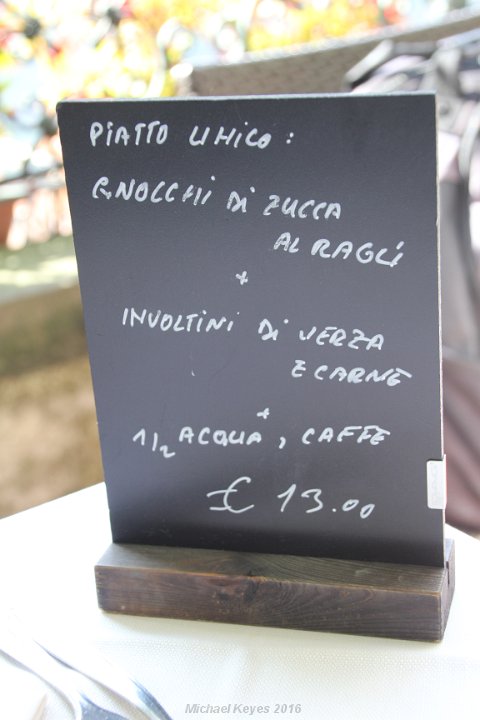 PIATTO UNICO:
GNOCCHI DI ZUCCA
AL RAGÙ
+
INVOLTINI DI VERZA
E CARNE
+
1/2 ACQUA, CAFFE
€ 13.00
Michael Keyes 2016